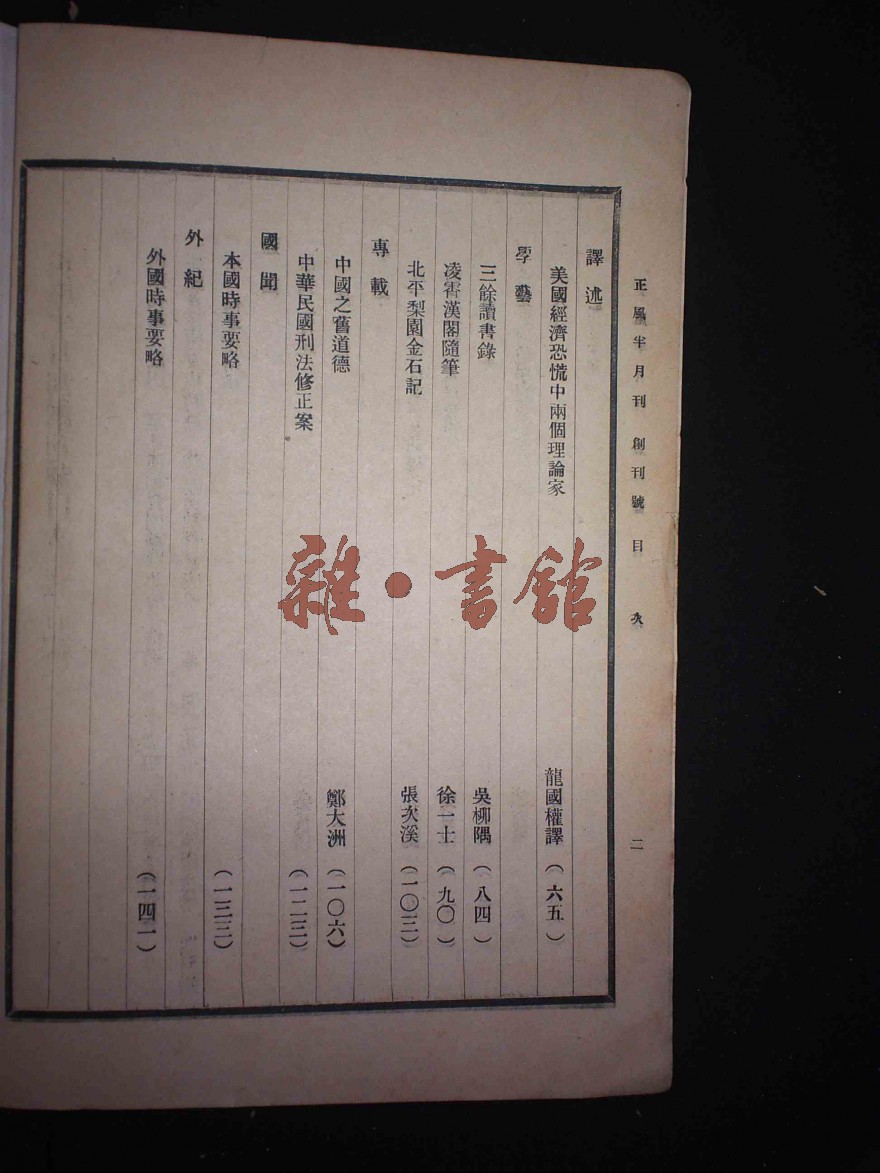 正風半月刊 創刊號 目次 二
譯述
美國經濟恐慌中兩個理論家 龍國權譯 (六五)
學藝
三餘讀書錄 吳柳隅 (八四)
凌霄漢閣隨筆 徐一士 (九〇)
北平梨園金石記 張次溪 (一〇三)
專載
中國之舊道德 鄭大洲 (一〇六)
中華民國刑法修正案 (一二三)
國聞
本國時事要略 (一三三)
外紀
外國時事要略 (一四一)
雜·書館